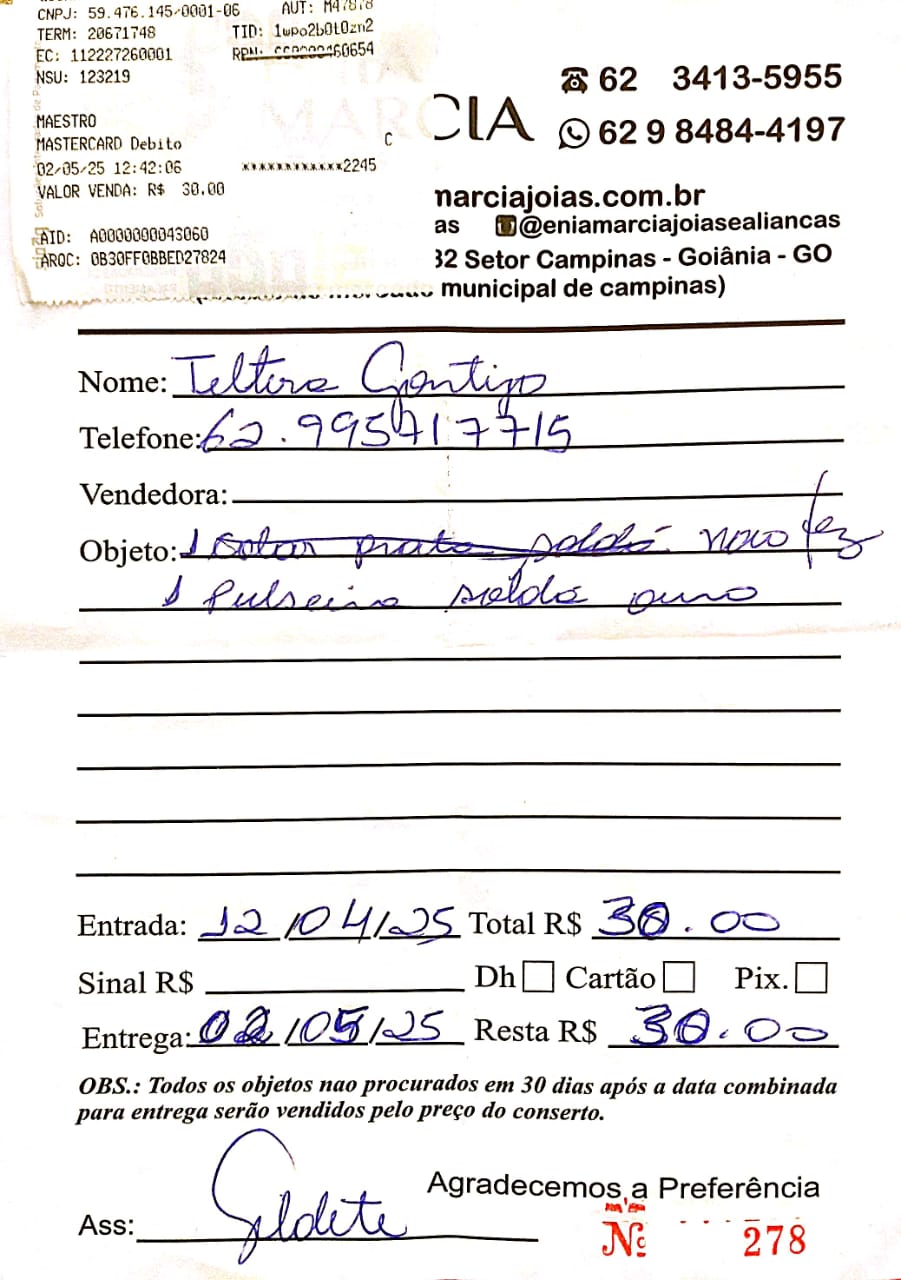 CNPJ: 59.476.145/0001-06 AUT: M47878
TERM: 20671748 TID: 1wpo2b0t0zn2
EC: 112227260001
NSU: 123219
MAESTRO
MASTERCARD Debito C
02/05/25 12:42:06 ************2245
VALOR VENDA: R$ 30.00
AID: A0000000043060
AROC: 0B30FF0BBED27824
MARCIA
62 3413-5955
62 9 8484-4197
narciajoias.com.br
as @eniamarciajoiasealiancas
32 Setor Campinas - Goiânia - GO
municipal de campinas)
Nome: Gontijo
Telefone: 62.995717715
Vendedora:
Objeto: 1 prata solda não fez
1 Pulseira solda ouro
Entrada: 12/04/25 Total R$ 30.00
Sinal R$ Dh Cartão Pix.
Entrega: 02/05/25 Resta R$ 30.00
OBS.: Todos os objetos nao procurados em 30 dias após a data combinada
para entrega serão vendidos pelo preço do conserto.
Agradecemos a Preferência
Ass: Gildete
Nº 278